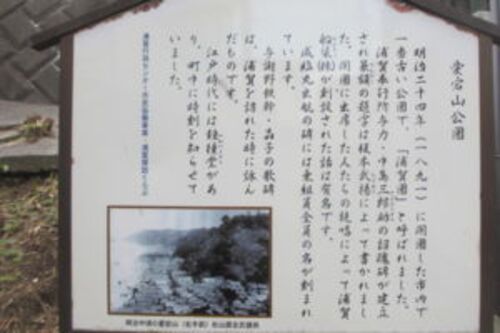 愛宕山公園
明治二十四年(一八九一)に開園した市内で
一番古い公園で、「浦賀園」と呼ばれました。
浦賀奉行所与力・中島三郎助の招魂碑が建立
され篆額の題字は榎本武揚によって書かれまし
た。開園に出席した人たちの提唱によって浦賀
船渠㈱が創設された話は有名です。
咸臨丸出航の碑には乗組員全員の名が刻まれ
ています。
与謝野鉄幹・晶子の歌碑
は、浦賀を訪れた時に詠ん
だものです。
江戸時代には鐘撞堂があ
り、町中に時刻を知らせて
いました。